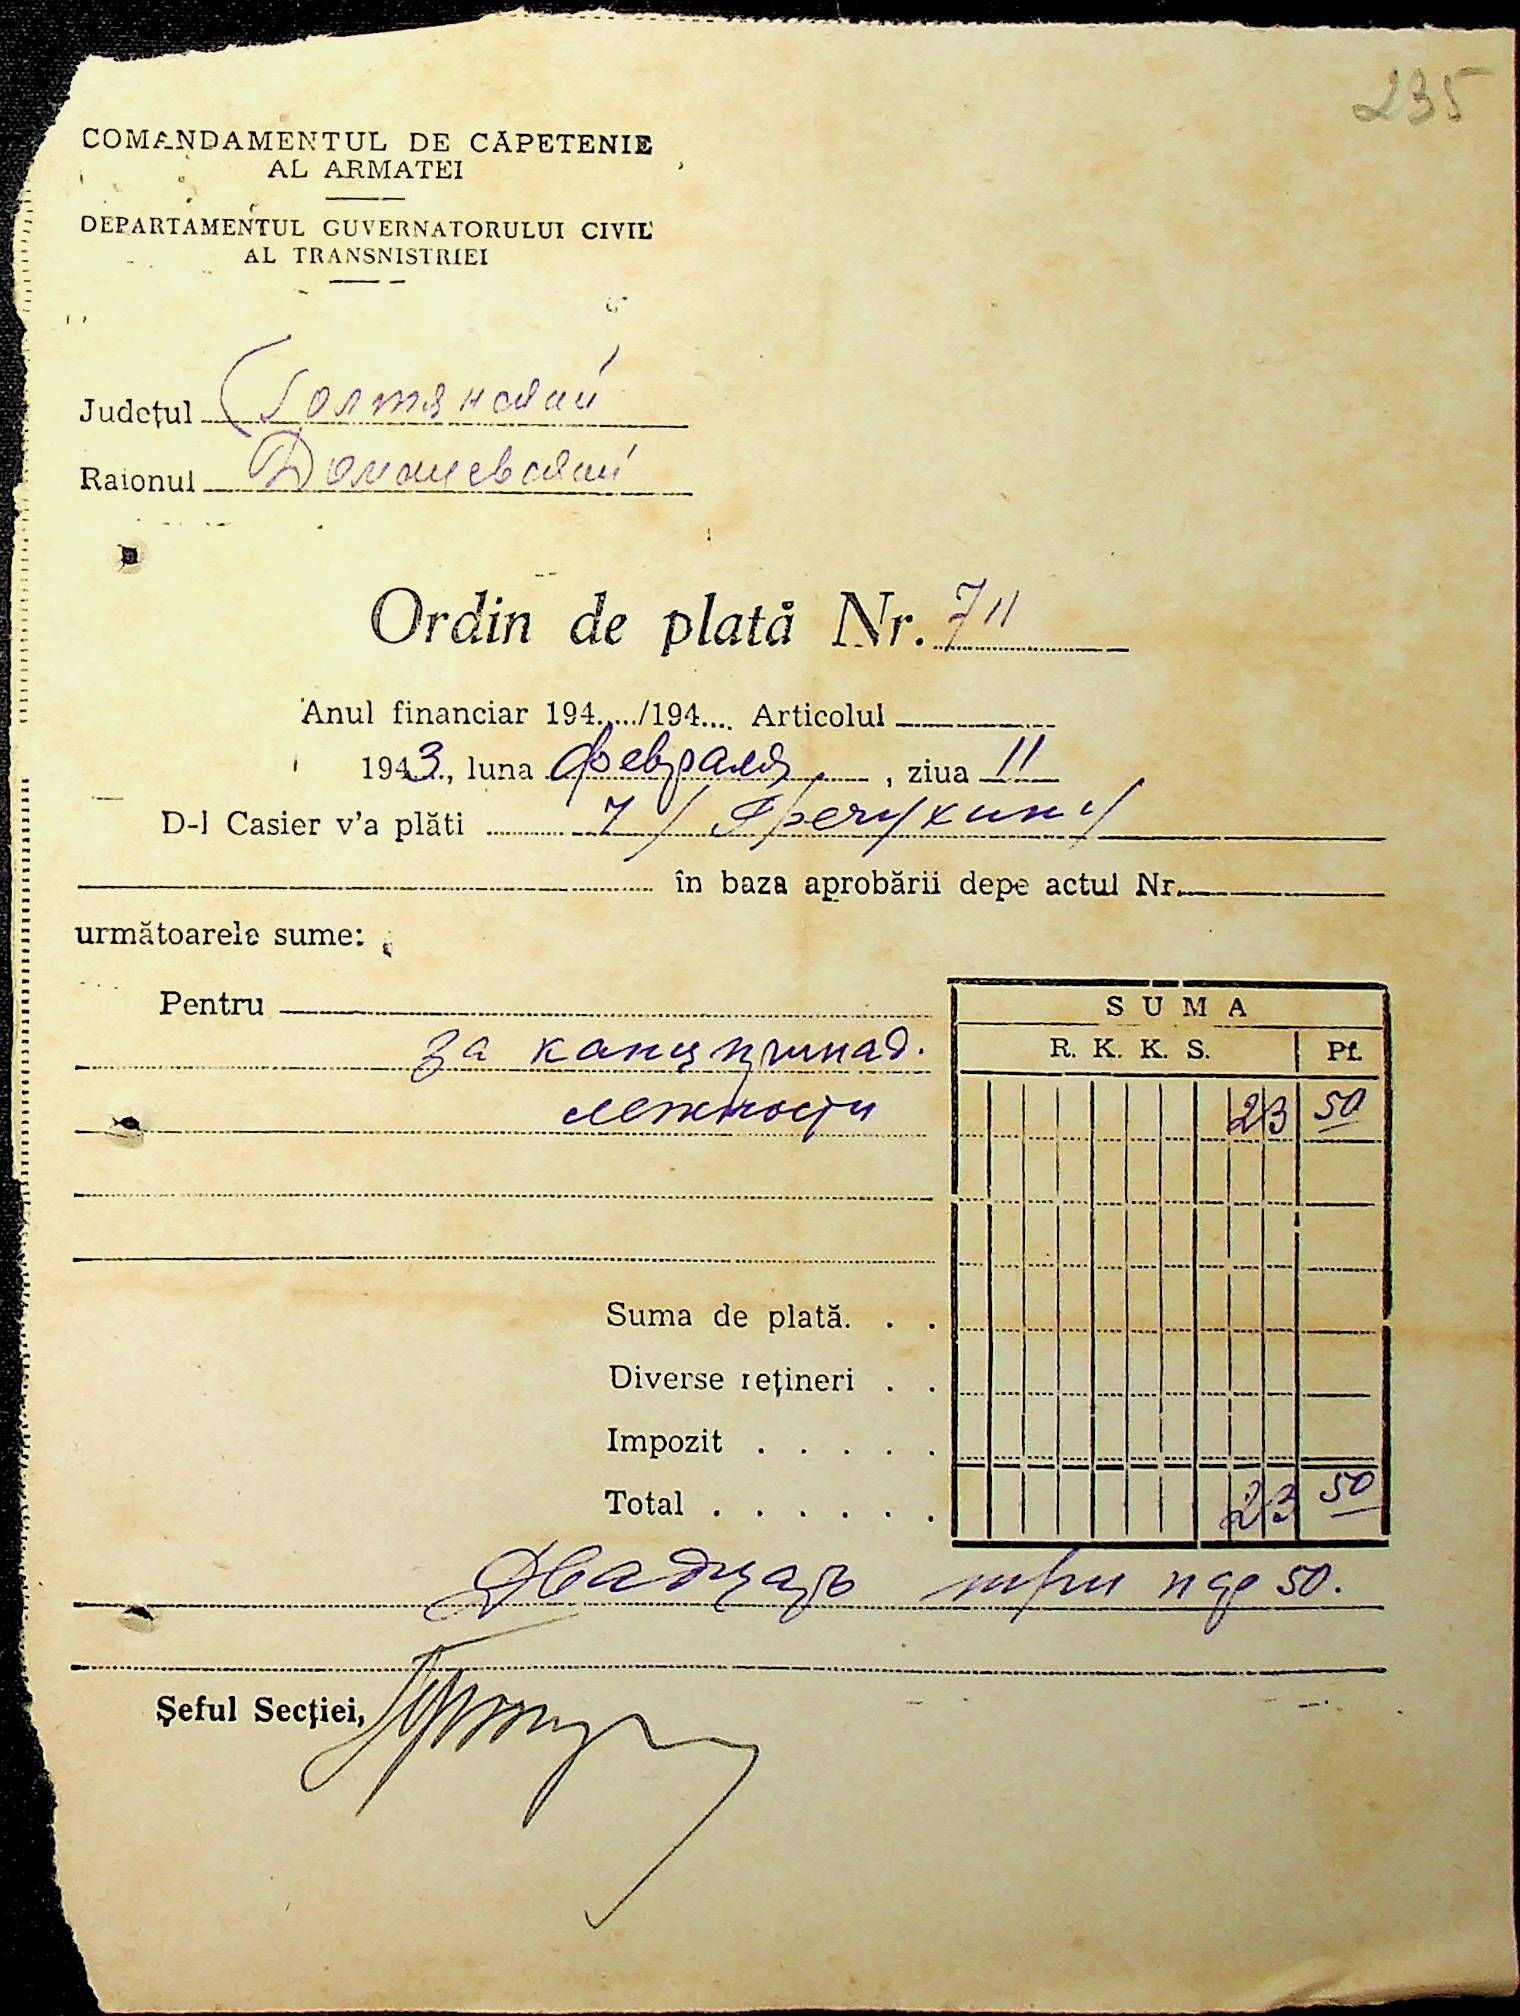 235
COMANDAMENTUL DE CĂPETENIE
AL ARMATEI
DEPARTAMENTUL GUVERNATORULUI CIVIL
AL TRANSNISTRIEI
Județul Голтянский
Raionul Доманевский
Ordin de plată Nr. 711
Anul financiar 194...../194.... Articolul
1943., luna февраля, ziua 11
D-l Casier v'a plăti Гречухину
în baza aprobării depe actul Nr.
următoarele sume:
Pentru
SUMA
R. K. K. S. Pf.
за канц принад.
лежности 23 50
Suma de plată. . .
Diverse rețineri . .
Impozit . . . . .
Total . . . . . . 23 50
Двадцать три пф 50.
Șeful Secției,